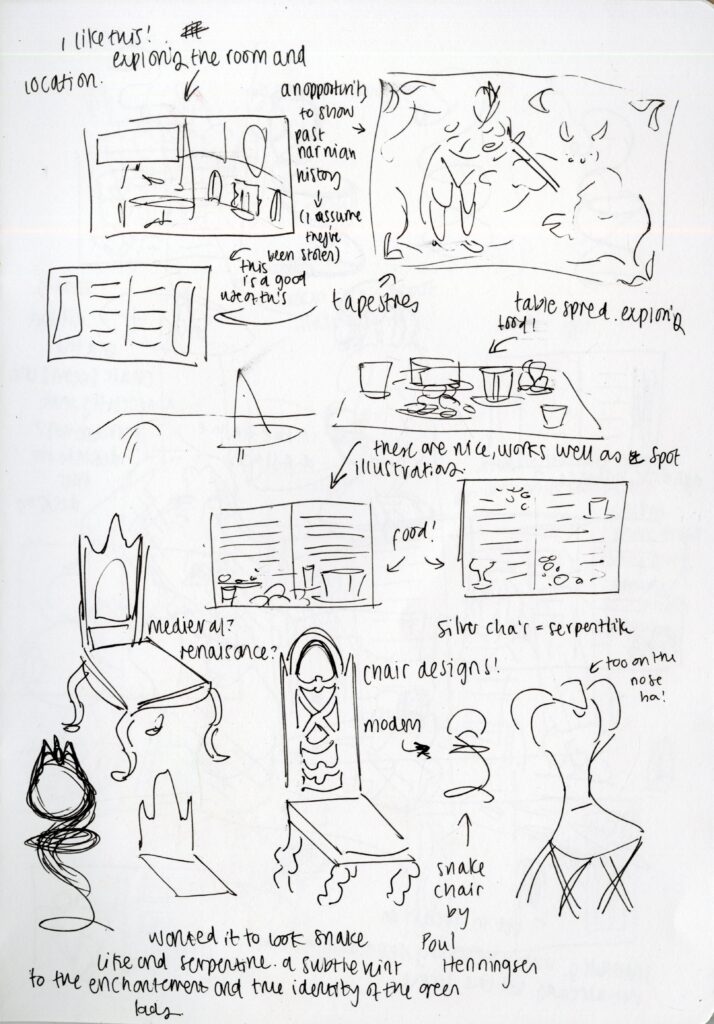 I like this!
exploring the room and
location.
an opportunity
to show
past
narnian
history
(I assume
they've
been stolen)
this
is a good
use of this
tapestres
table spred. exploring
food!
these are nice, works well as spot
illustrations.
food!
medieval?
renaisance?
silver chair = serpentlik
chair designs!
too on the
nose
ha!
modern
snake
chair
by
Poul
Henningsen
wanted it to look snake
like and serpentine. a subtle hint
to the enchantement and true identity of the green
lady